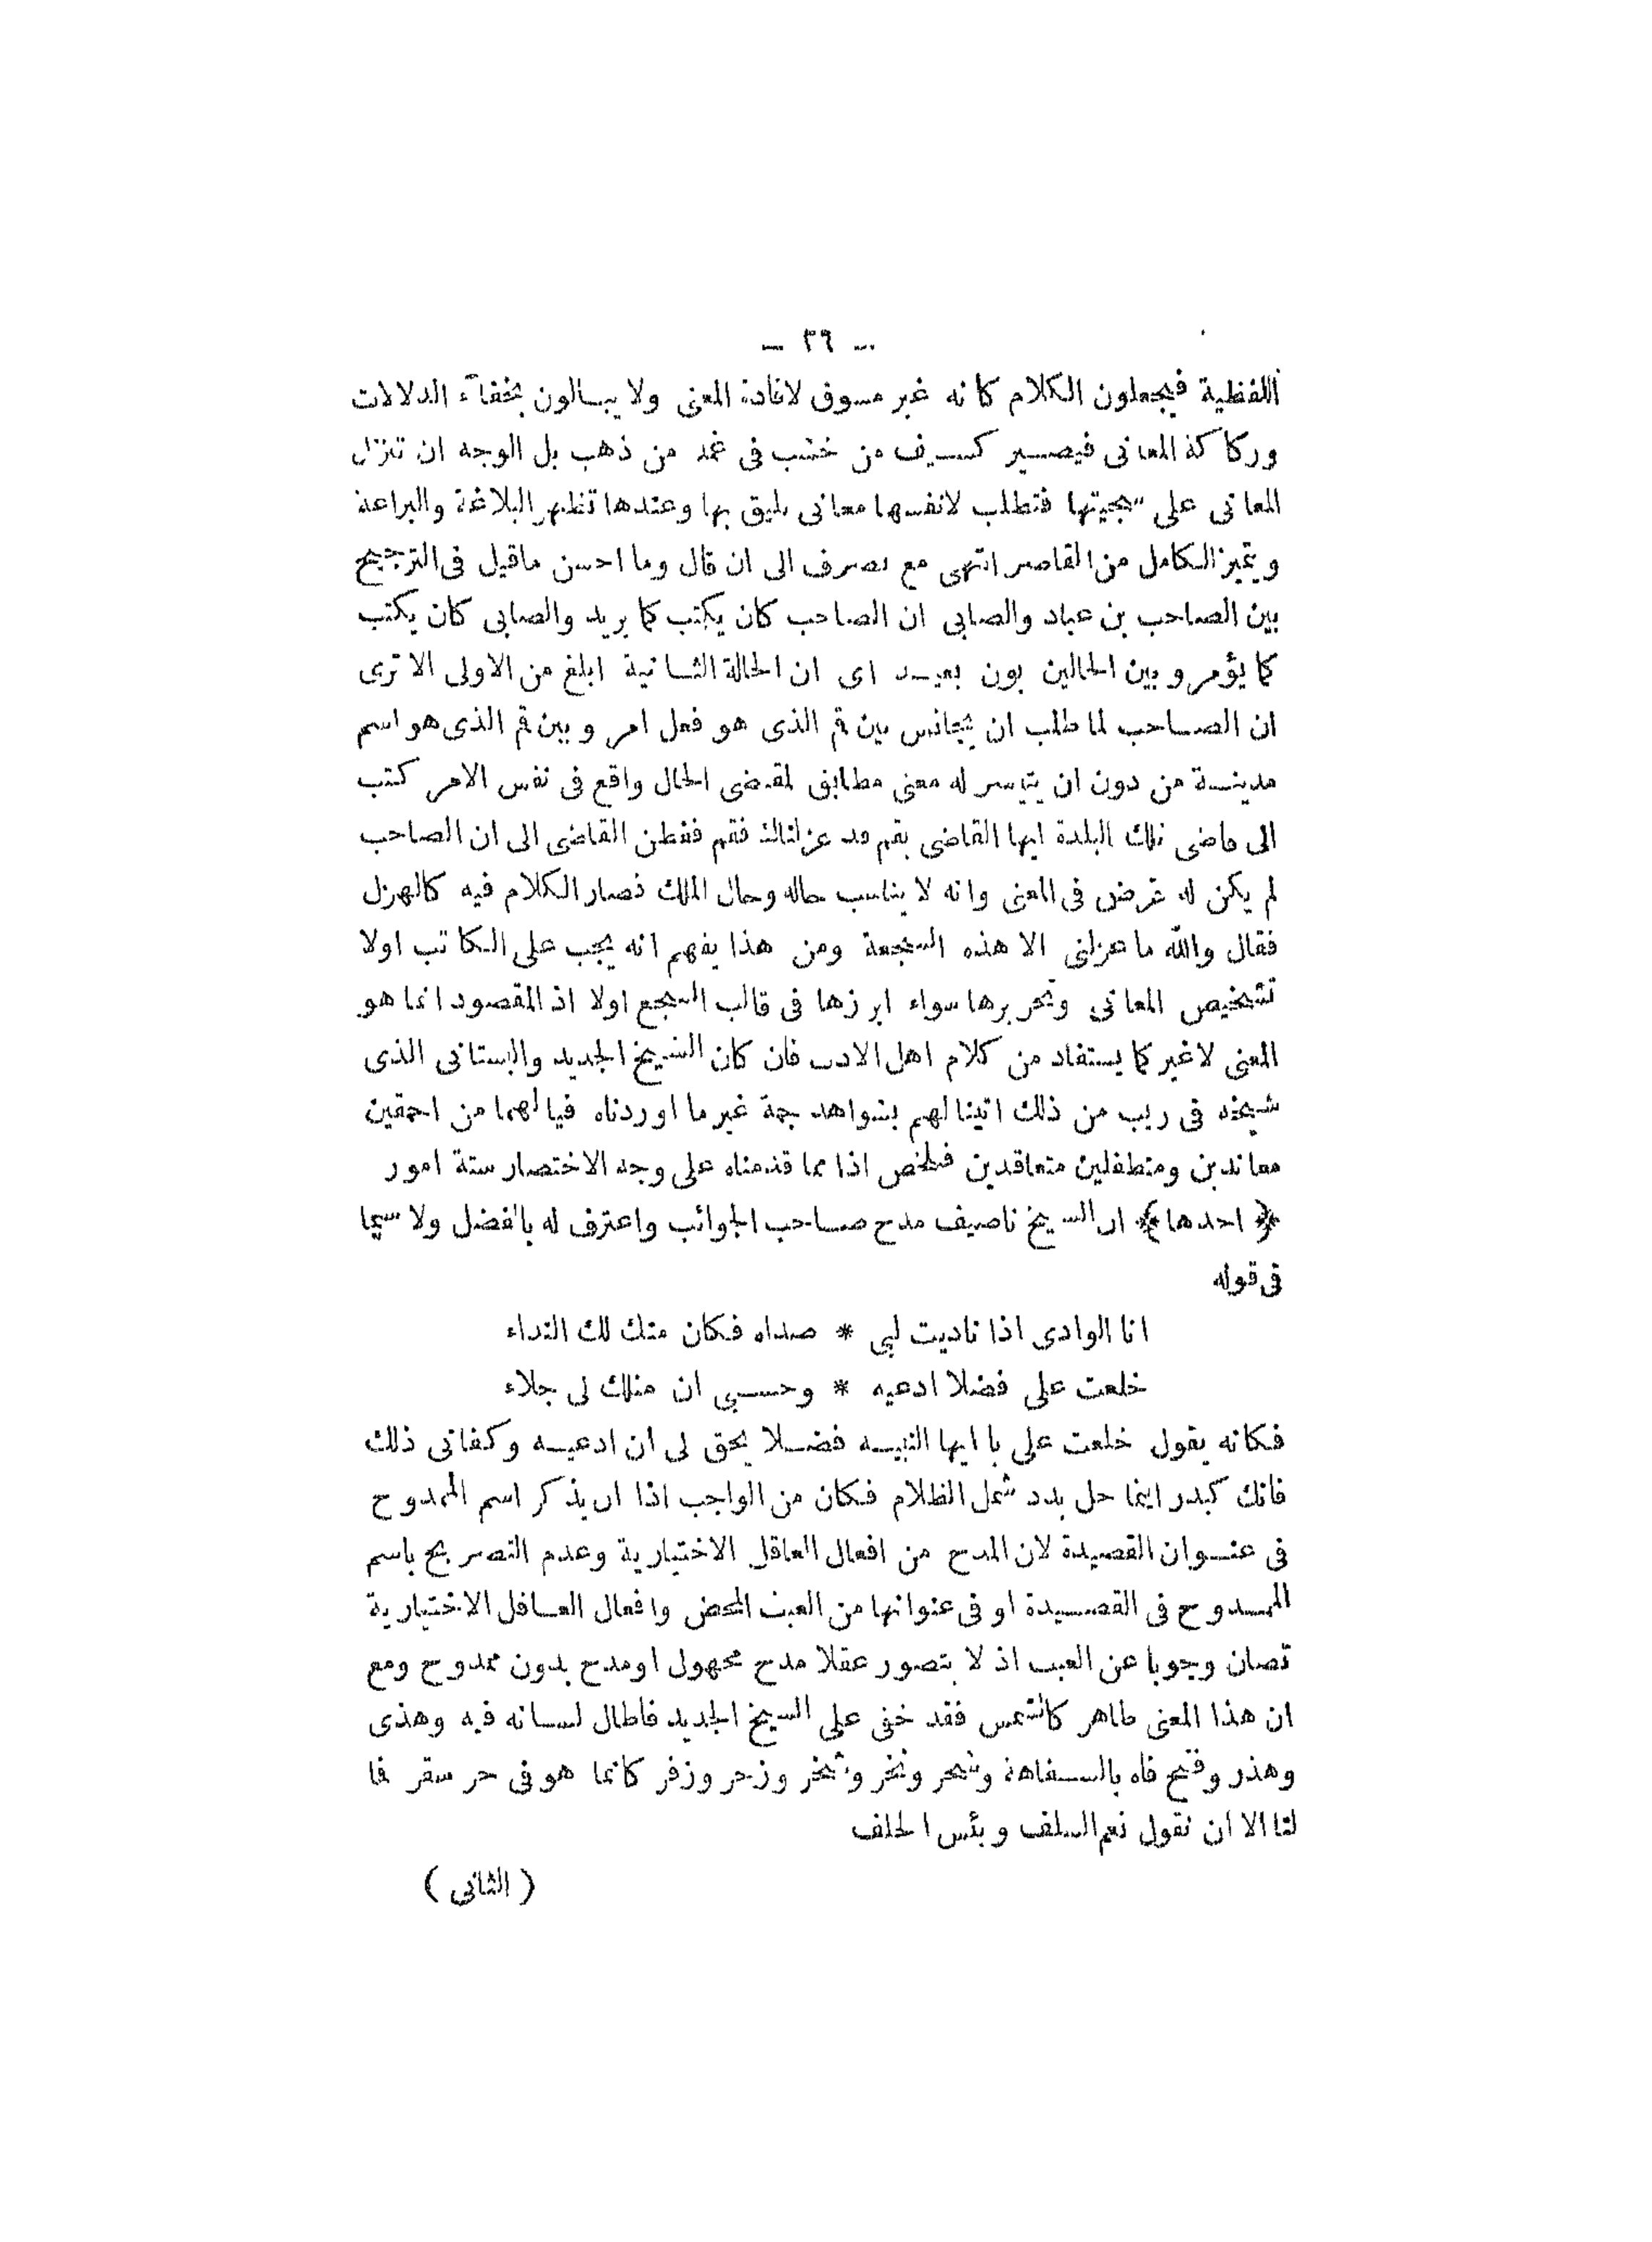 – ٣٩ –
اللفظية فيجعلون الكلام كانه غير مسوق لافادة المعنى ولا يبالون بخفآء الدلالات
وركاكة المعانى فيصير كسيف من خشب فى غمد من ذهب بل الوجه ان تنزل
المعانى على سجيتها فتطلب لانفسها معانى يليق بها وعندها تظهر البلاغة والبراعة
ويتميز الكامل من القاصر انتهى مع تصرف الى ان قال وما احسن ماقيل فى الترجيح
بين الصاحب بن عباد والصابى ان الصاحب كان يكتب كما يريد والصابى كان يكتب
كما يؤمر وبين الحالين بون بعيد اى ان الحالة الثانية ابلغ من الاولى الا ترى
ان الصاحب لما طلب ان يجانس بين قم الذى هو فعل امر وبين قم الذى هو اسم
مدينة من دون ان يتيسر له معنى مطابق لمقتضى الحال واقع فى نفس الامر كتب
الى قاضى تلك البلدة ايها القاضى بقم قد عزلناك فقم ففطن القاضى الى ان الصاحب
لم يكن له غرض فى المعنى وانه لا يناسب حاله وحال الملك فصار الكلام فيه كالهزل
فقال والله ما عزلنى الا هذه السجعة ومن هذا يفهم انه يجب على الكاتب اولا
تشخيص المعانى وتحريرها سواء ابرزها فى قالب السجع اولا اذ المقصود انما هو
المعنى لاغير كما يستفاد من كلام اهل الادب فان كان الشيخ الجديد والبستانى الذى
شيخه فى ريب من ذلك اتينا لهم بشواهد جمة غير ما اوردناه فيا لهما من احمقين
معاندين ومتطفلين متعاقدين فتلخص اذا مما قدمناه على وجه الاختصار ستة امور
﴿ احدها ﴾ ان الشيخ ناصيف مدح صاحب الجوائب واعترف له بالفضل ولا سيما
فى قوله
انا الوادى اذا ناديت لبى * صداه فكان منك لك النداء
خلعت على فضلا ادعيه * وحسبى ان منك لى جلاء
فكانه يقول خلعت على يا ايها النبيه فضلا يحق لى ان ادعيه وكفانى ذلك
فانك كبدر اينما حل بدد شمل الظلام فكان من الواجب اذا ان يذكر اسم الممدوح
فى عنوان القصيدة لان المدح من افعال العاقل الاختيارية وعدم التصريح باسم
الممدوح فى القصيدة او فى عنوانها من العبث المحض وافعال العاقل الاختيارية
تصان وجوبا عن العبث اذ لا يتصور عقلا مدح مجهول اومدح بدون ممدوح ومع
ان هذا المعنى ظاهر كالشمس فقد خفى على الشيخ الجديد فاطال لسانه فيه وهذى
وهذر وفتح فاه بالسفاهة وشحر ونخر وشخر وزحر وزفر كانما هو فى حر سقر فما
لنا الا ان نقول نعم السلف وبئس الخلف
( الثانى )